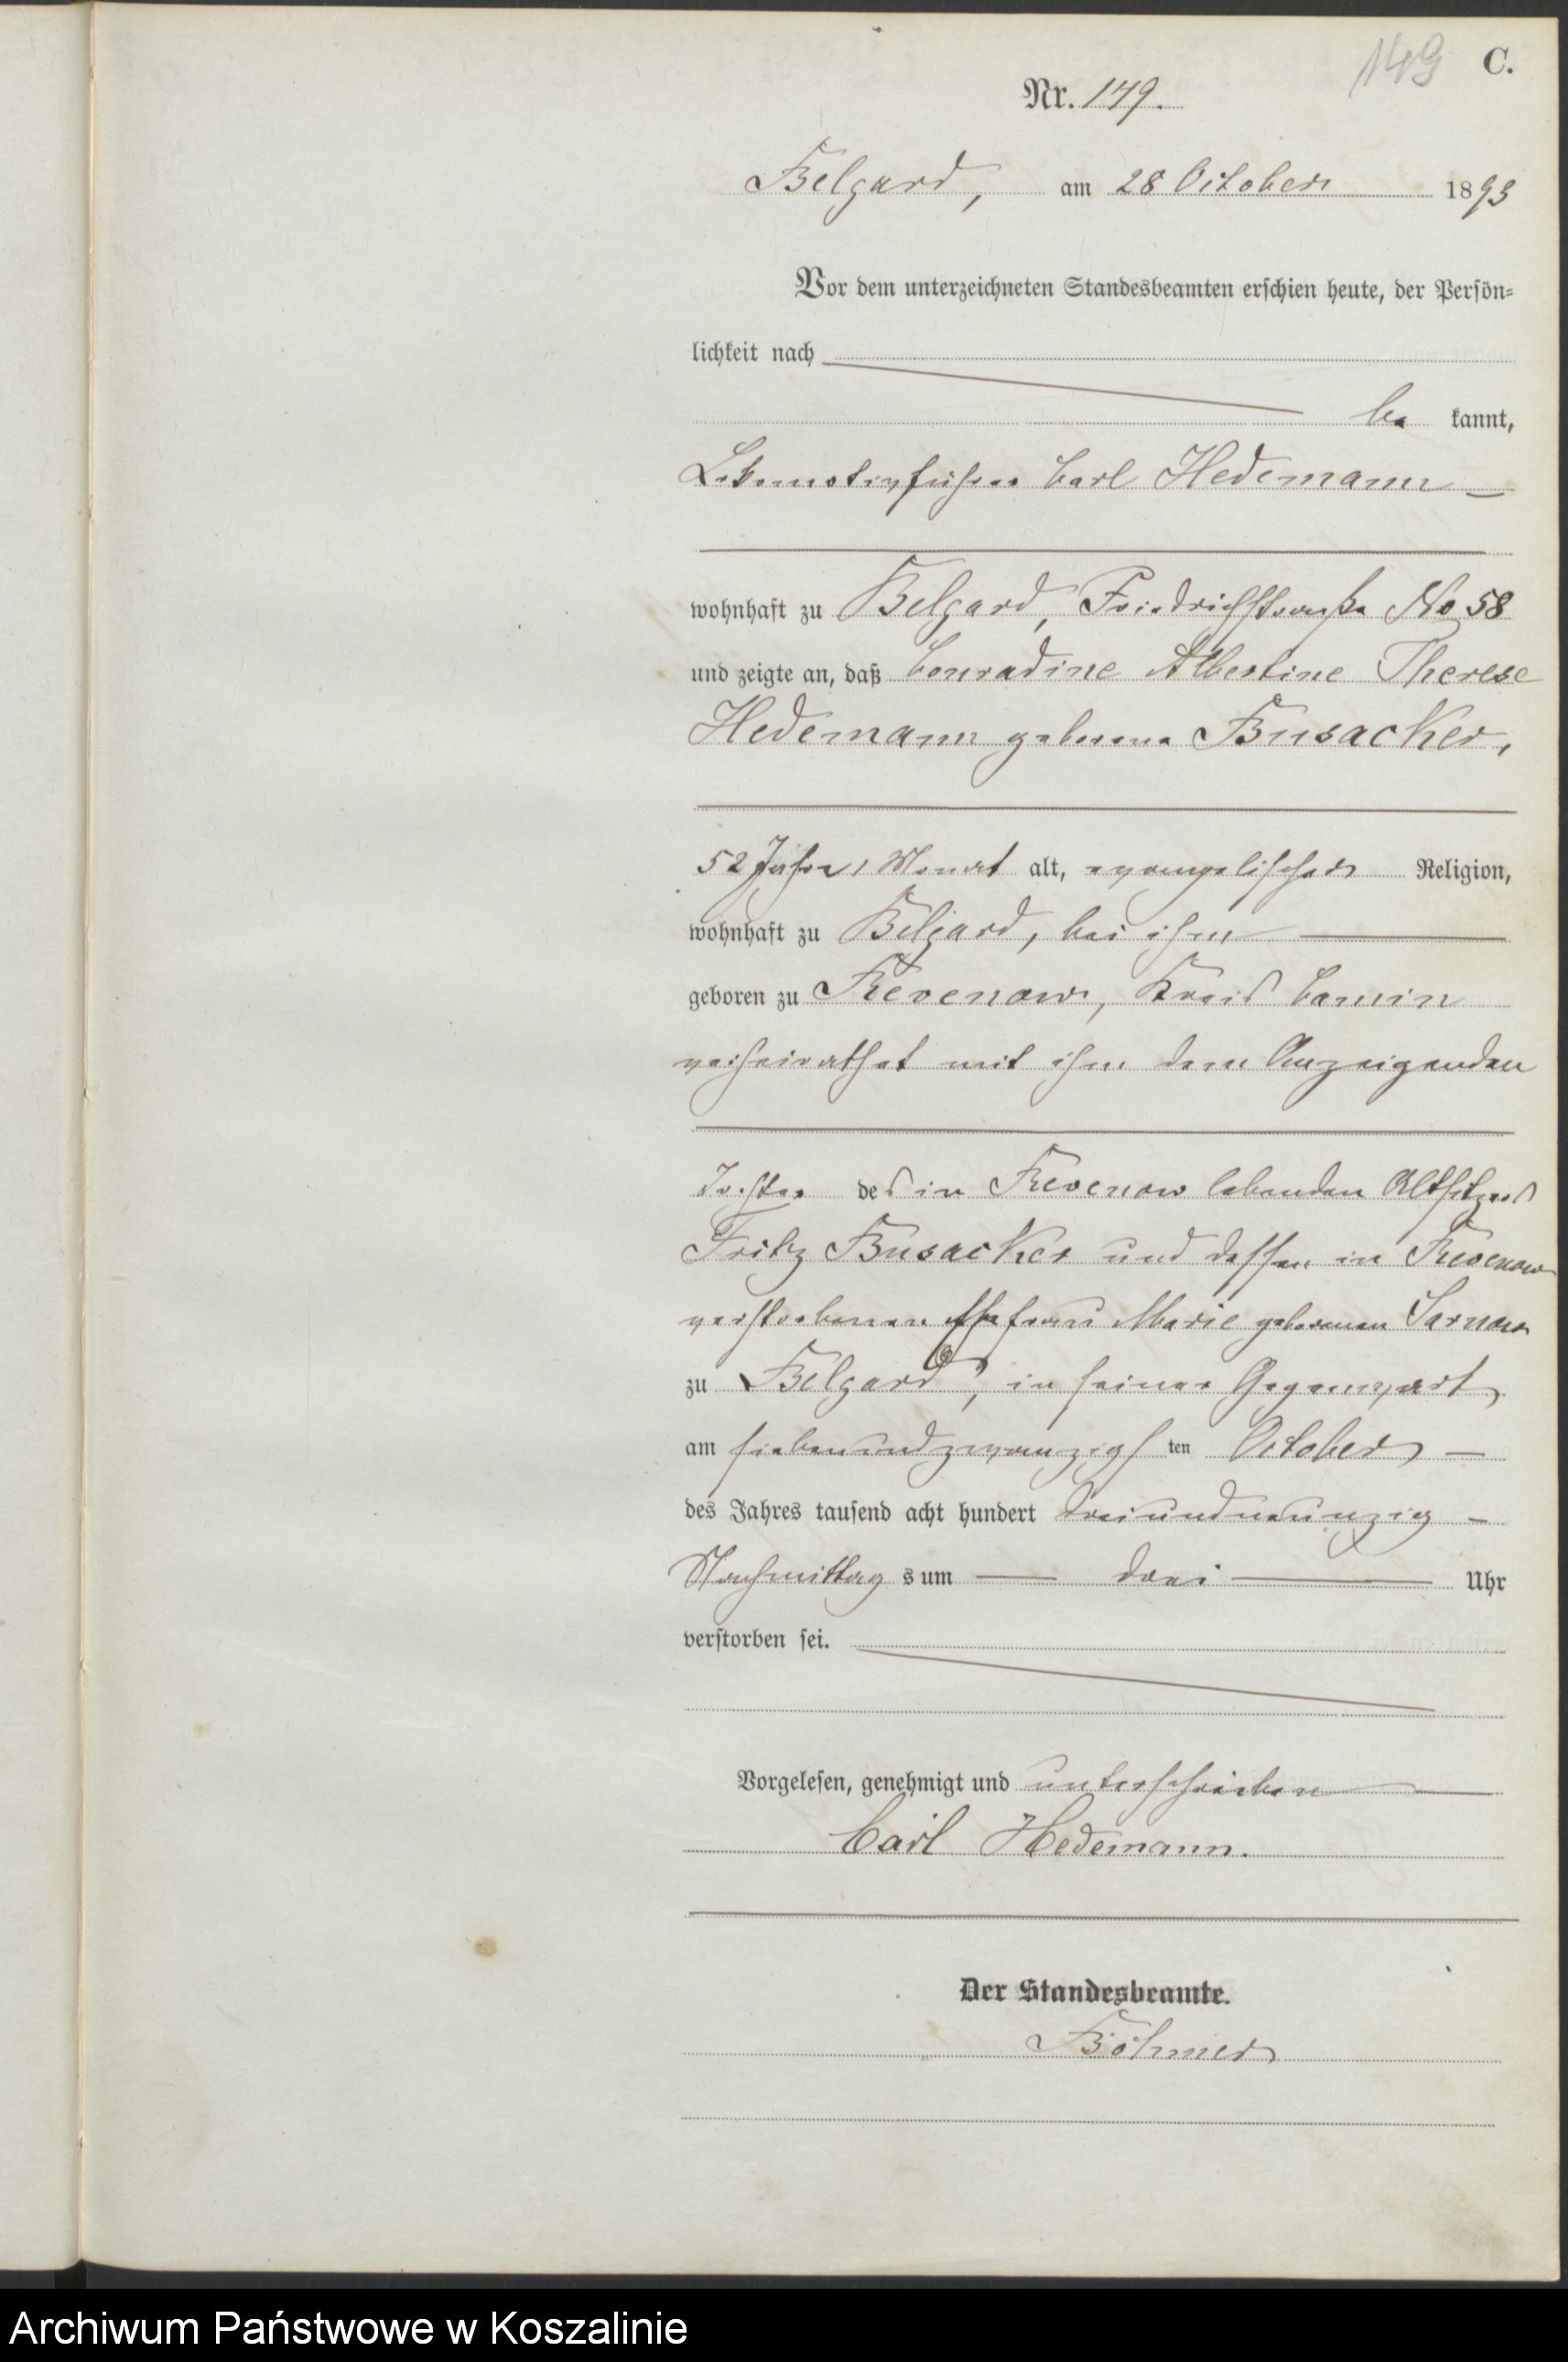 149 C.
Nr. 149.
Belgard, am 28 October 1893
Vor dem unterzeichneten Standesbeamten erschien heute, der Persön-
lichkeit nach
be kannt,
Lokomotivführer Carl Hedemann
wohnhaft zu Belgard, Friedrichstraße No 58
und zeigte an, daß Conradine Albertine Therese
Hedemann geborene Busacker,
52 Jahre 1 Monat alt, evangelischer Religion,
wohnhaft zu Belgard, bei ihm
geboren zu Revenow, Kreis Camin
verheirathet mit ihm dem Anzeigenden
Tochter des in Revenow lebenden Altsitzers
Fritz Busacker und dessen in Revenow
verstorbenen Ehefrau Marie geborenen Sarnow
zu Belgard, in seiner Gegenwart
am siebenundzwanzigsten October
des Jahres tausend acht hundert dreiundneunzig
Nachmittags um drei Uhr
verstorben sei.
Vorgelesen, genehmigt und unterschrieben
Carl Hedemann.
Der Standesbeamte.
Böhmer
Archiwum Państwowe w Koszalinie